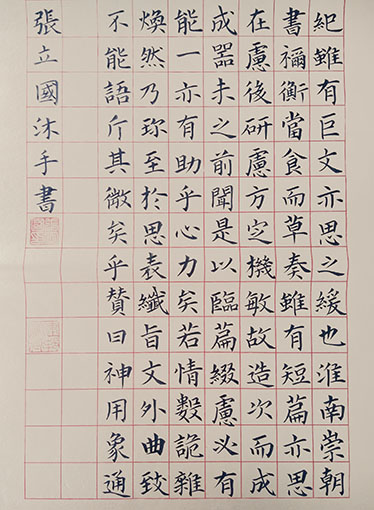 紀雖有巨文亦思之緩也淮南崇朝
書禰衡當食而草奏雖有短篇亦思
在慮後研慮方㝎機敏故造次而成
成器未之前聞是以臨篇綴慮必有
能一亦有助乎心力矣若情數詭雜
煥然乃珎至於思表纖旨文外曲致
不能語斤其微矣乎贊曰神用象通
張立國沐手書